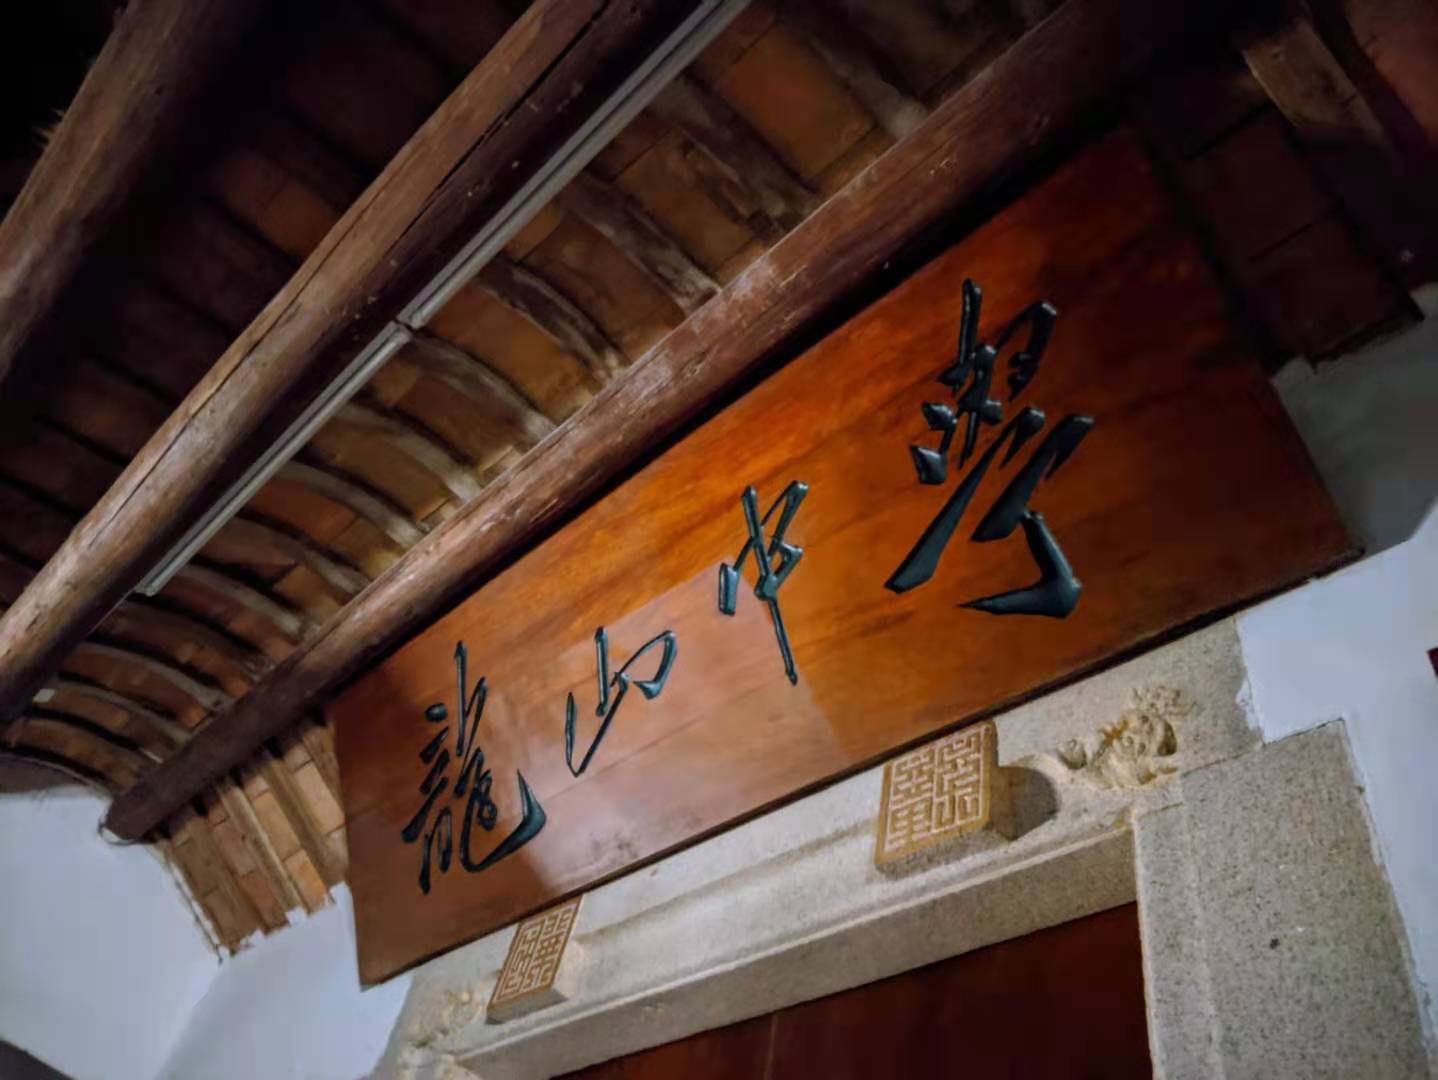 龍山中學